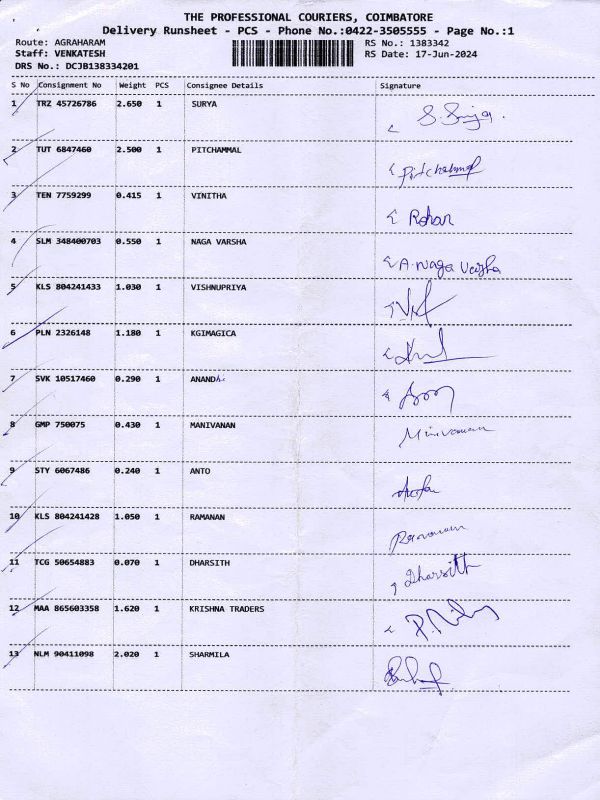 THE PROFESSIONAL COURIERS, COIMBATORE
Delivery Runsheet - PCS - Phone No.:0422-3505555 - Page No.:1
Route: AGRAHARAM RS No.: 1383342
Staff: VENKATESH RS Date: 17-Jun-2024
DRS No.: DCJB138334201
S No Consignment No Weight PCS Consignee Details Signature
1 TRZ 45726786 2.650 1 SURYA
2 TUT 6847460 2.500 1 PITCHAMMAL Pitchammal
3 TEN 7759299 0.415 1 VINITHA Rohan
4 SLM 348400703 0.550 1 NAGA VARSHA A. Naga Varsha
5 KLS 804241433 1.030 1 VISHNUPRIYA
6 PLN 2326148 1.180 1 KGIMAGICA
7 SVK 10517460 0.290 1 ANAND
8 GMP 750075 0.430 1 MANIVANAN
9 STY 6067486 0.240 1 ANTO
10 KLS 804241428 1.050 1 RAMANAN
11 TCG 50654883 0.070 1 DHARSITH Dharsith
12 MAA 865603358 1.620 1 KRISHNA TRADERS
13 NLM 90411098 2.020 1 SHARMILA